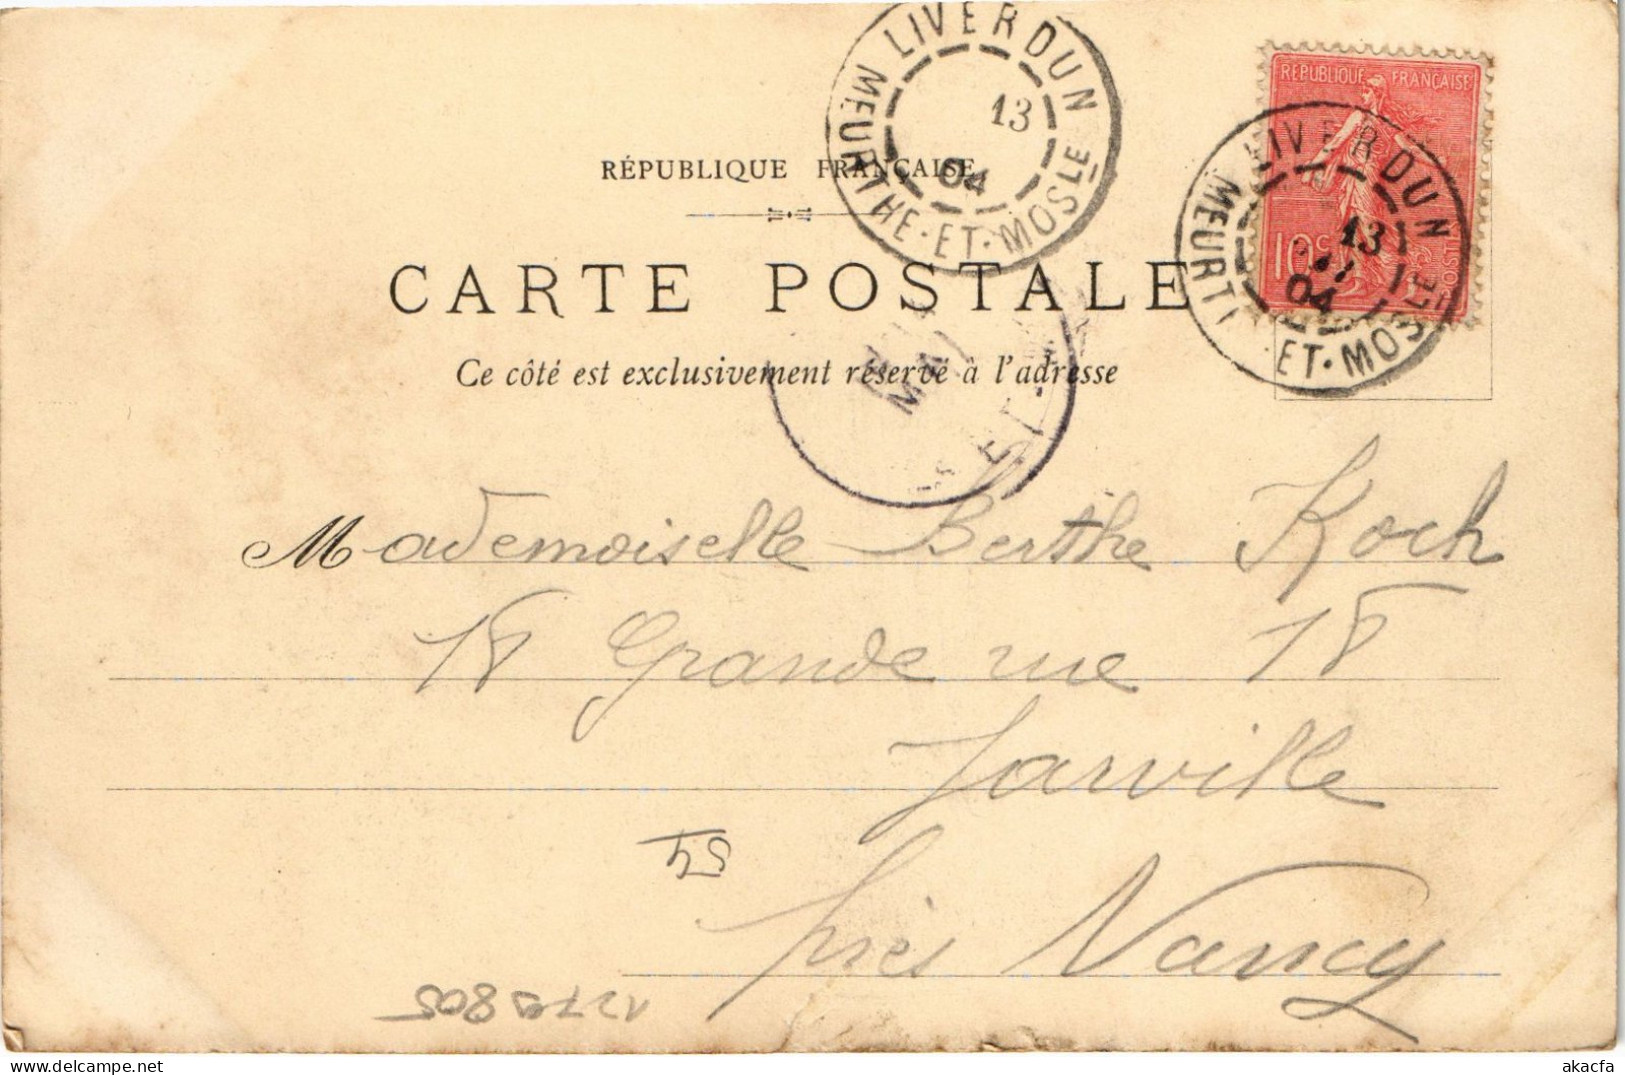 LIVERDUN
MEURTHE·ET·MOSLE
13
04
REPUBLIQUE FRANÇAISE
10c
POSTE
LIVERDUN
MEURT ET·MOSLE
13
04
RÉPUBLIQUE FRANÇAISE
CARTE POSTALE
Ce côté est exclusivement réservé à l'adresse
ET
Mademoiselle Berthe Koch
18 Grande rue 18
Jarville
54
près Nancy
1279805
akacfa